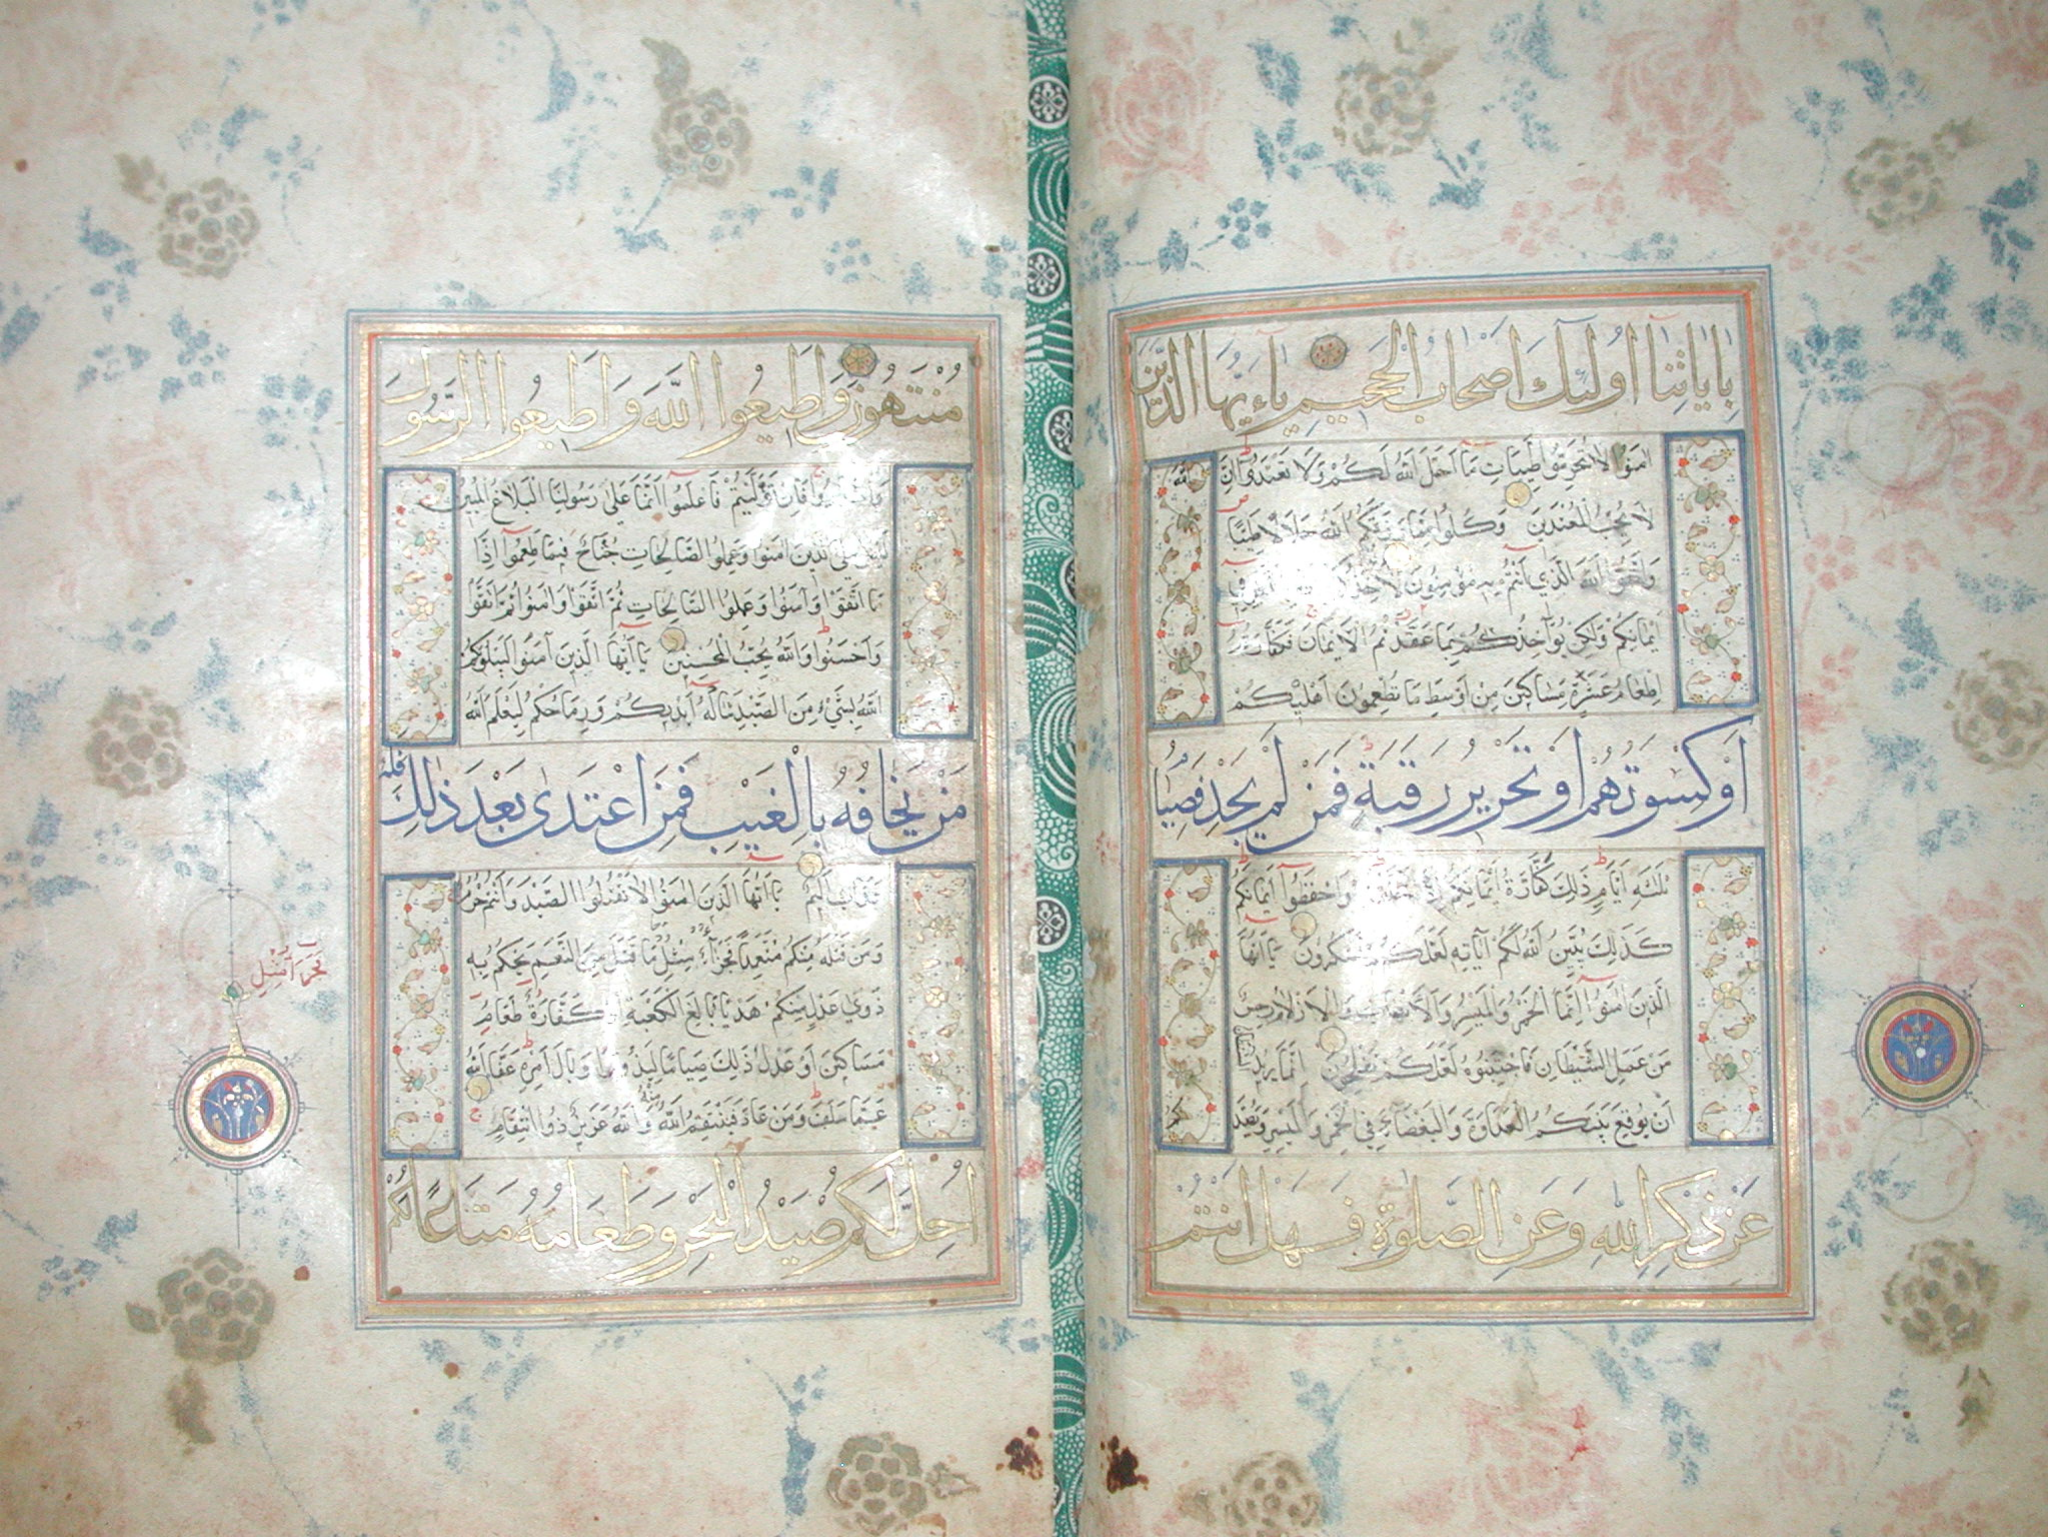 بِاٰيَاتِنَٓا اُولٰٓئِكَ اَصْحَابُ الْجَحِيمِ يَٓا اَيُّهَا الَّذِينَ
اٰمَنُوا لَا تُحَرِّمُوا طَيِّبَاتِ مَٓا اَحَلَّ اللّٰهُ لَكُمْ وَلَا تَعْتَدُوا اِنَّ اللّٰهَ
لَا يُحِبُّ الْمُعْتَدِينَ وَكُلُوا مِمَّا رَزَقَكُمُ اللّٰهُ حَلَالًا طَيِّبًا
وَاتَّقُوا اللّٰهَ الَّذِٓي اَنْتُمْ بِهِ مُؤْمِنُونَ لَا
اَيْمَانِكُمْ وَلٰكِنْ يُؤَاخِذُكُمْ بِمَا عَقَّدْتُمُ الْاَيْمَانَ فَكَفَّارَتُهُ
اِطْعَامُ عَشَرَةِ مَسَاكِينَ مِنْ اَوْسَطِ مَا تُطْعِمُونَ اَهْلِيكُمْ
اَوْ كِسْوَتُهُمْ اَوْ تَحْرِيرُ رَقَبَةٍ فَمَنْ لَمْ يَجِدْ فَصِيَامُ
ثَلٰثَةِ اَيَّامٍ ذٰلِكَ كَفَّارَةُ اَيْمَانِكُمْ اِذَا حَلَفْتُمْ وَاحْفَظُٓوا اَيْمَانَكُمْ
كَذٰلِكَ يُبَيِّنُ اللّٰهُ لَكُمْ اٰيَاتِهِ لَعَلَّكُمْ تَشْكُرُونَ يَٓا اَيُّهَا
الَّذِينَ اٰمَنُٓوا اِنَّمَا الْخَمْرُ وَالْمَيْسِرُ وَالْاَنْصَابُ وَالْاَزْلَامُ رِجْسٌ
مِنْ عَمَلِ الشَّيْطَانِ فَاجْتَنِبُوهُ لَعَلَّكُمْ تُفْلِحُونَ اِنَّمَا يُرِيدُ الشَّيْطَانُ
اَنْ يُوقِعَ بَيْنَكُمُ الْعَدَاوَةَ وَالْبَغْضَٓاءَ فِي الْخَمْرِ وَالْمَيْسِرِ وَيَصُدَّكُمْ
عَنْ ذِكْرِ اللّٰهِ وَعَنِ الصَّلٰوةِ فَهَلْ اَنْتُمْ
مُنْتَهُونَ وَاَطِيعُوا اللّٰهَ وَاَطِيعُوا الرَّسُولَ
وَاحْذَرُوا فَاِنْ تَوَلَّيْتُمْ فَاعْلَمُٓوا اَنَّمَا عَلٰى رَسُولِنَا الْبَلَاغُ الْمُبِينُ
لَيْسَ عَلَى الَّذِينَ اٰمَنُوا وَعَمِلُوا الصَّالِحَاتِ جُنَاحٌ فِيمَا طَعِمُٓوا اِذَا
مَا اتَّقَوْا وَاٰمَنُوا وَعَمِلُوا الصَّالِحَاتِ ثُمَّ اتَّقَوْا وَاٰمَنُوا ثُمَّ اتَّقَوْا
وَاَحْسَنُوا وَاللّٰهُ يُحِبُّ الْمُحْسِنِينَ يَٓا اَيُّهَا الَّذِينَ اٰمَنُوا لَيَبْلُوَنَّكُمُ
اللّٰهُ بِشَيْءٍ مِنَ الصَّيْدِ تَنَالُهُٓ اَيْدِيكُمْ وَرِمَاحُكُمْ لِيَعْلَمَ اللّٰهُ
مَنْ يَخَافُهُ بِالْغَيْبِ فَمَنِ اعْتَدٰى بَعْدَ ذٰلِكَ فَلَهُ
عَذَابٌ اَلِيمٌ يَٓا اَيُّهَا الَّذِينَ اٰمَنُوا لَا تَقْتُلُوا الصَّيْدَ وَاَنْتُمْ حُرُمٌ
وَمَنْ قَتَلَهُ مِنْكُمْ مُتَعَمِّدًا فَجَزَٓاءٌ مِثْلُ مَا قَتَلَ مِنَ النَّعَمِ يَحْكُمُ بِهِ
ذَوَيْ عَدْلٍ مِنْكُمْ هَدْيًا بَالِغَ الْكَعْبَةِ اَوْ كَفَّارَةٌ طَعَامُ
مَسَاكِينَ اَوْ عَدْلُ ذٰلِكَ صِيَامًا لِيَذُوقَ وَبَالَ اَمْرِهِ عَفَا اللّٰهُ
عَمَّا سَلَفَ وَمَنْ عَادَ فَيَنْتَقِمُ اللّٰهُ مِنْهُ وَاللّٰهُ عَزِيزٌ ذُو انْتِقَامٍ
اُحِلَّ لَكُمْ صَيْدُ الْبَحْرِ وَطَعَامُهُ مَتَاعًا لَكُمْ